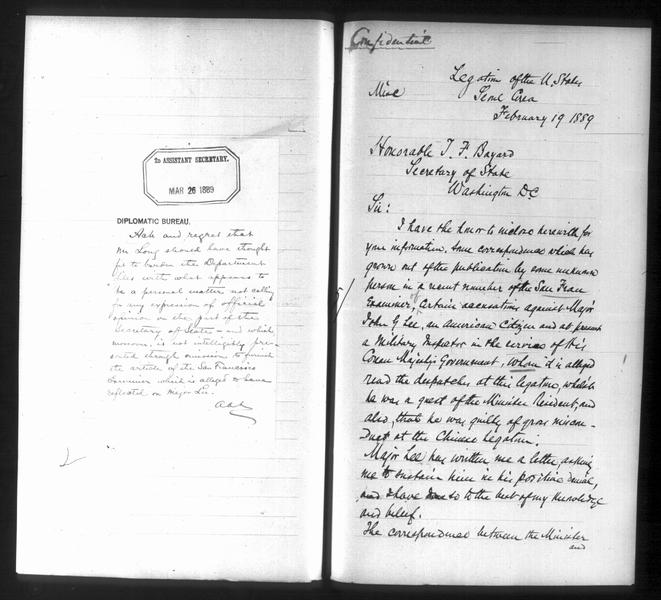 2D ASSISTANT SECRETARY.
MAR 26 1889
DIPLOMATIC BUREAU.
Ack and regret that
Mr Long should have thought
fit to burden the Department
files with what appears to
be a personal matter not calling
for any expression of official
opinion on the part of the
Secretary of State - and which
moreover, is not intelligibly pre-
sented through omission to furnish
the article of the San Francisco
Examiner which is alleged to have
reflected on Major Lee.
AAA
Confidential
Legation of the U. States
Misc
Seoul Corea
February 19 1889
Honorable T. F. Bayard
Secretary of State
Washington DC
Sir:
I have the honor to inclose herewith for
your information, some correspondence which has
grown out of the publication by some unknown
person in a recent number of the San Fran
Examiner, certain accusations against Major
John G Lee, an American Citizen and at present
a Military Instructor in the service of His
Corean Majesty's Government, whom it is alleged
read the despatches at this legation, whilst
he was a guest of the Minister Resident, and
also, that he was guilty of gross miscon-
duct at the Chinese legation.
Major Lee has written me a letter, asking
me to sustain him in his positive denial,
and I have done so to the best of my knowledge
and belief.
The correspondence between the Minister
and